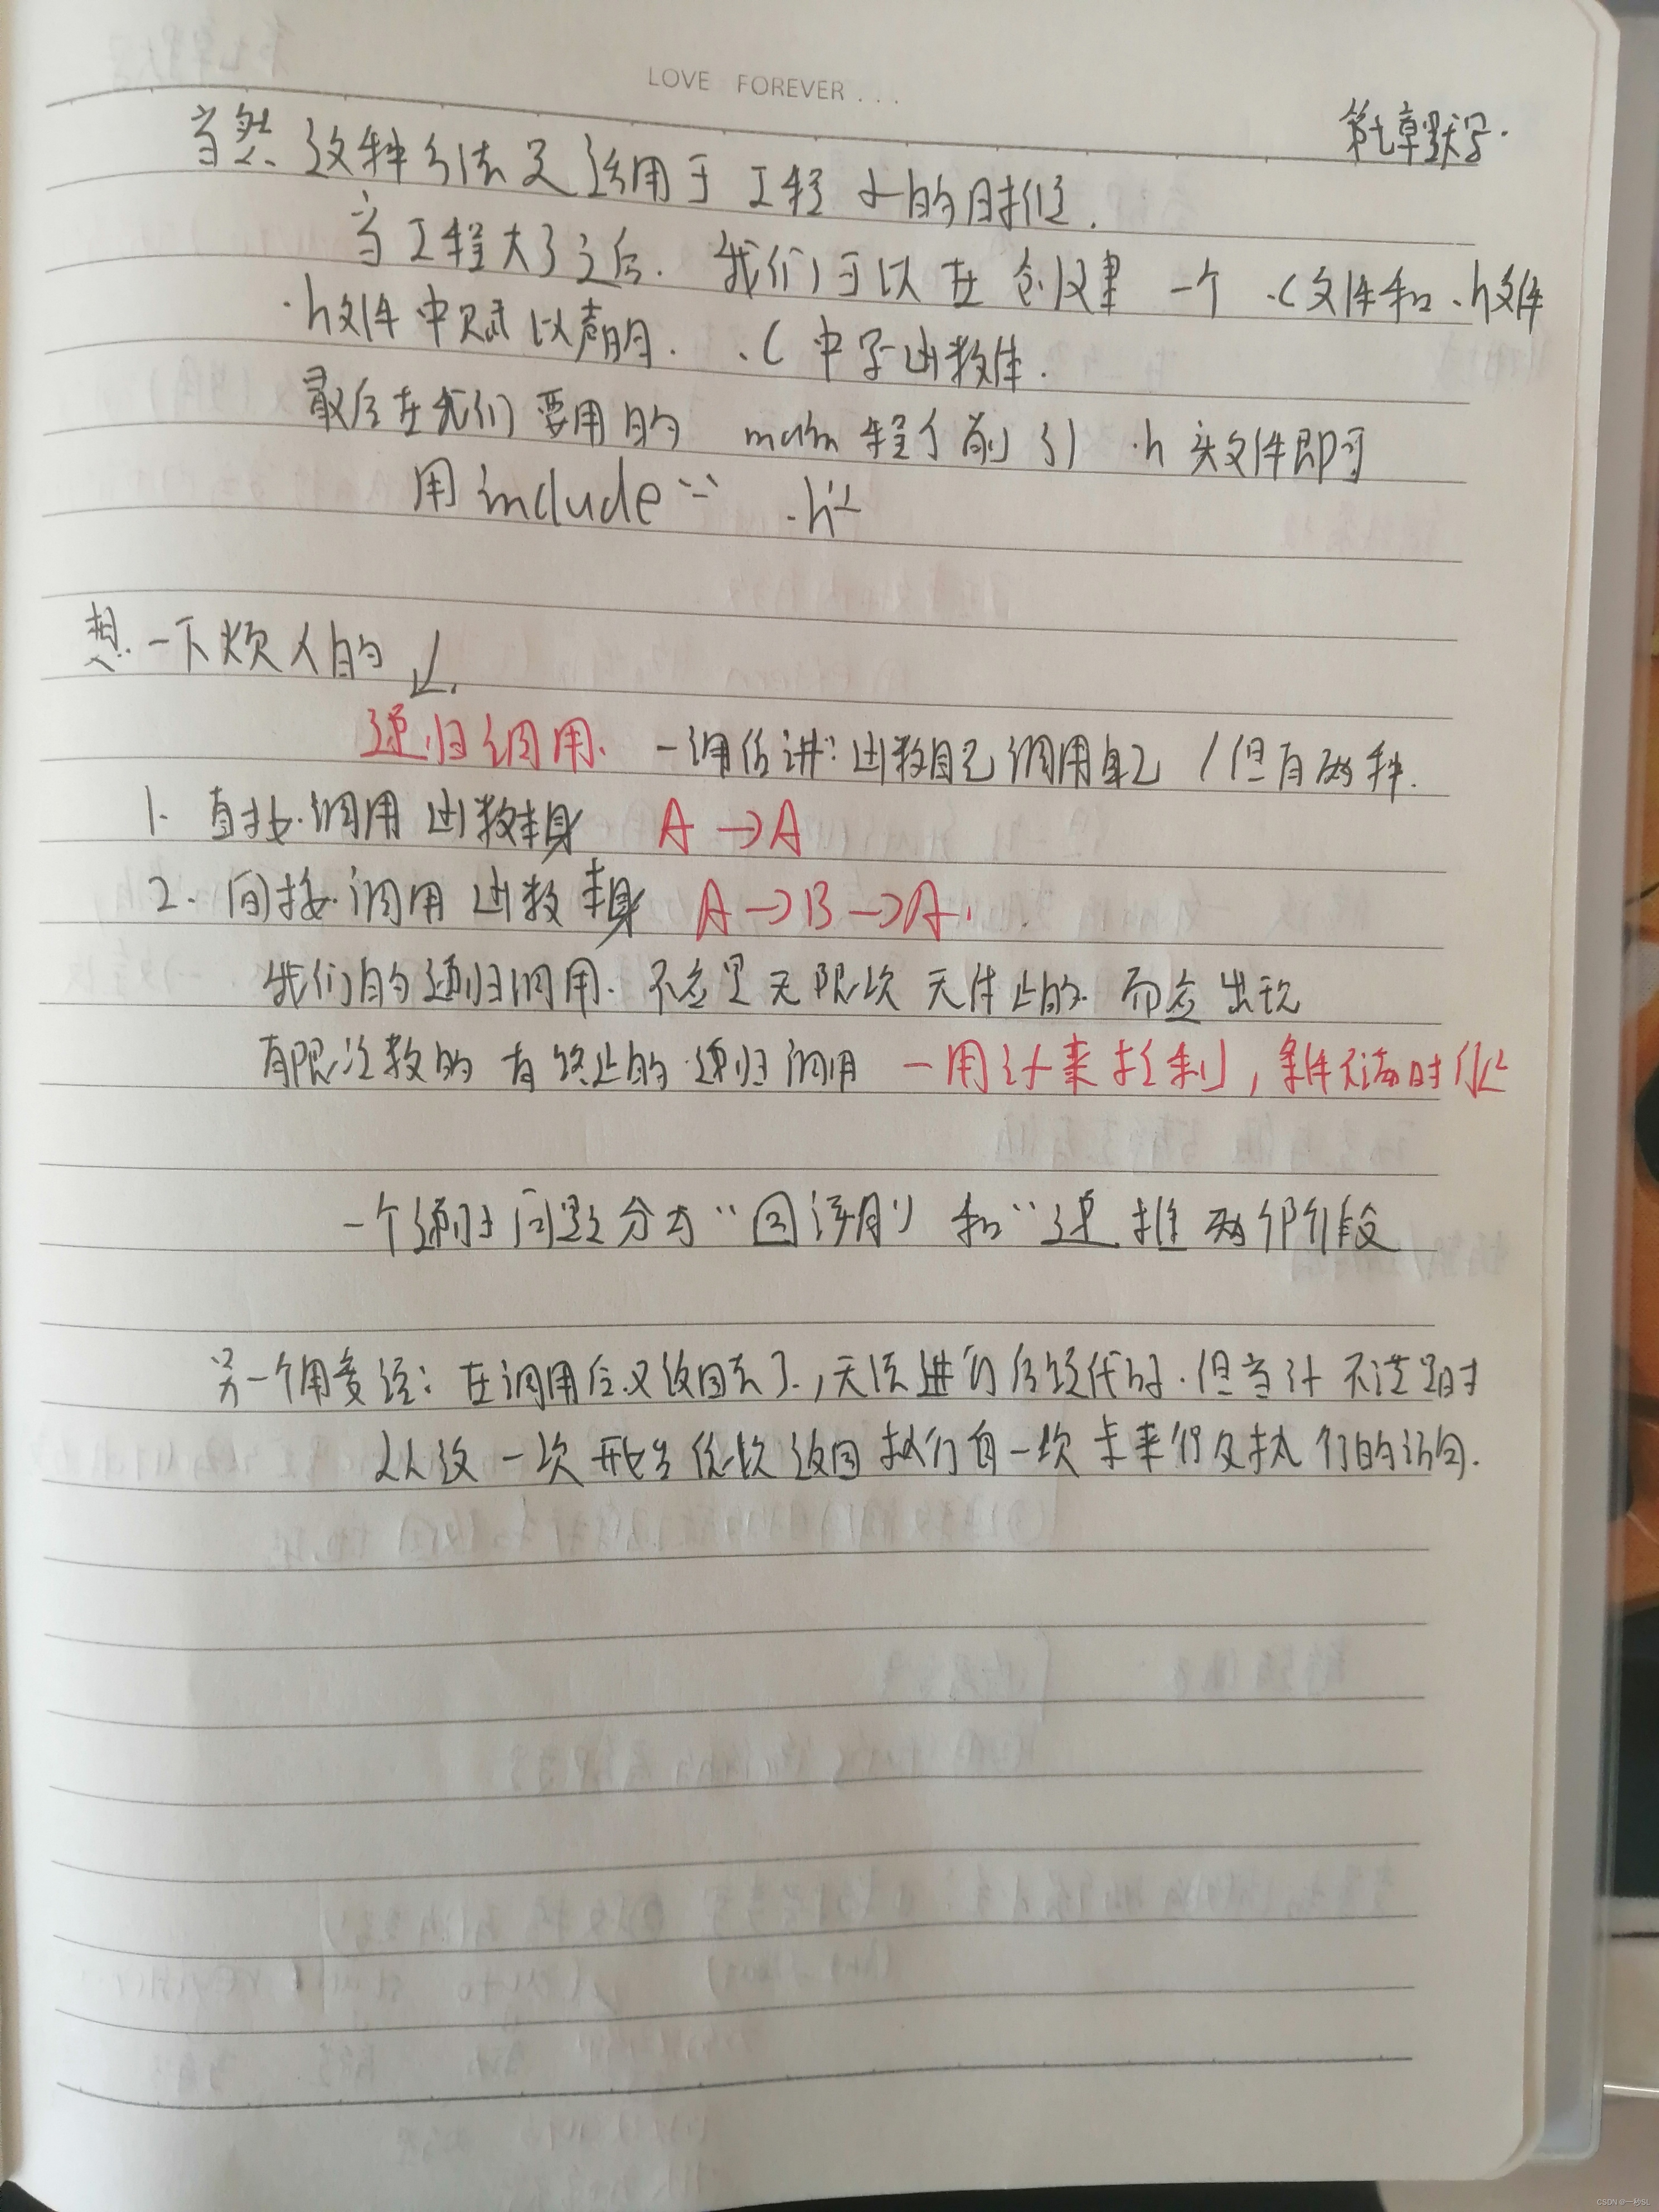 LOVE FOREVER...
第七章默写.
当然 这种方法只适用于工程小的时候.
当工程大了之后. 我们可以在创建一个 .c文件和.h文件
.h文件中赋以声明. .c中写函数体.
最后在我们要用的 main 程序前引 .h 头文件即可
用include" .h"
想一下烦人的↙.
递归调用. 一通俗讲:函数自己调用自己 / 但有两种.
1. 直接.调用函数本身 A→A
2. 间接.调用函数本身 A→B→A.
我们的递归调用. 不应是无限次 无休止的. 而应出现
有限次数的 有终止的.递归调用 一用if来控制,条件不满时停止
一个递归问题分为"回溯" 和"递推 两个阶段
另一个角度说:在调用后又返回去了.,无须进行后续代码.但当if不满足时
从这一次开始 依次返回 执行每一次 未来得及执行的语句.
CSDN @一秒SL